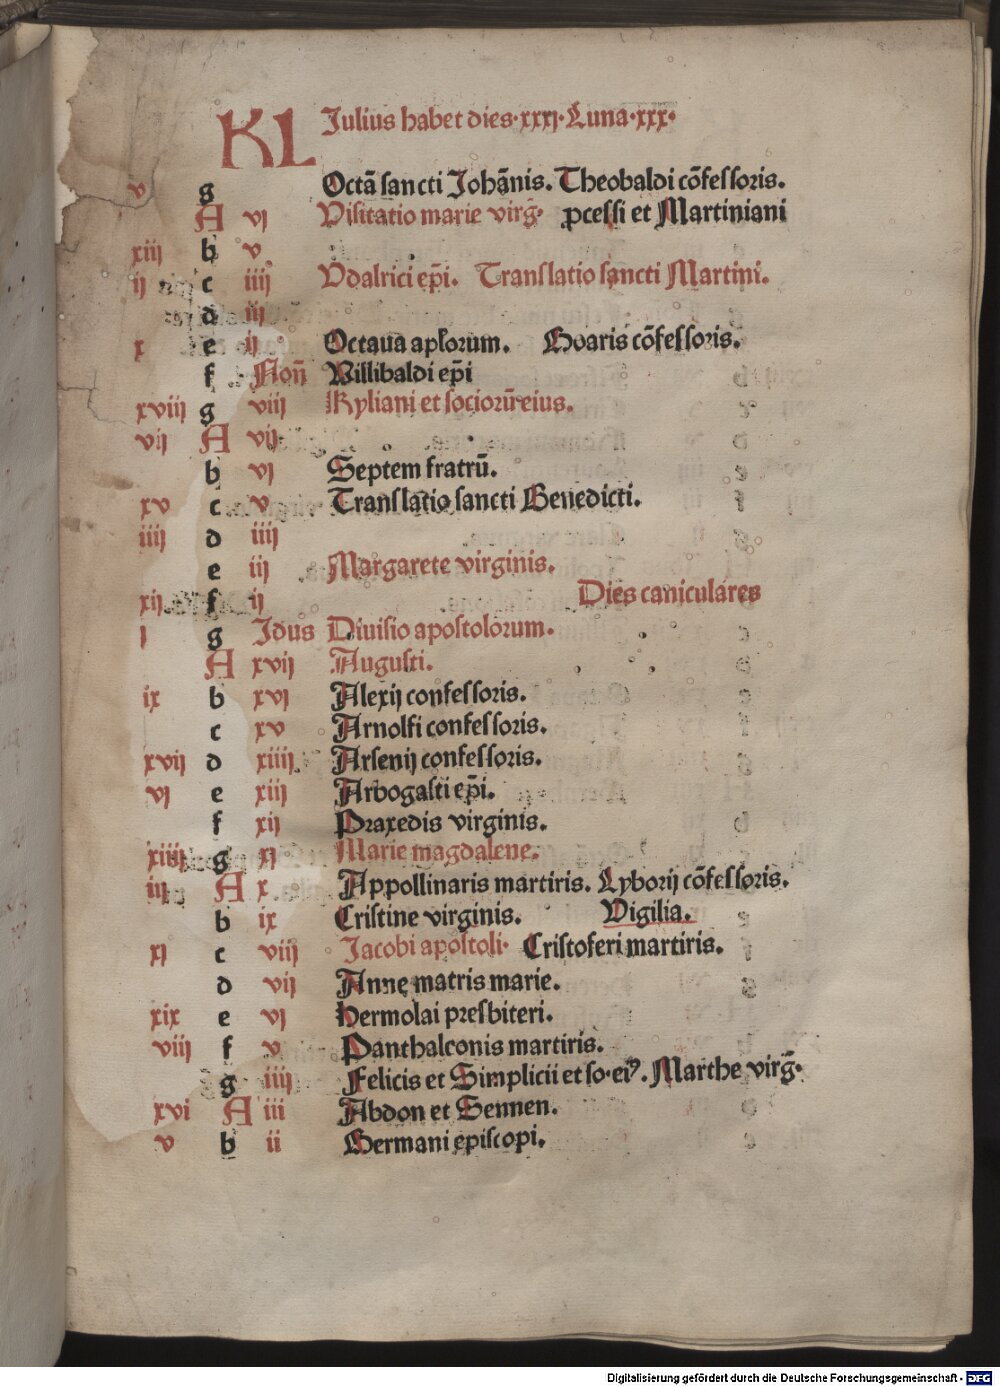 KL Julius habet dies·xxxj·Luna·xxx·
v g Octā sancti Johānis. Theobaldi cōfessoris.
A vj Visitatio marie virgī· ꝓcessi et Martiniani
xiij b v
ij c iiij Vdalrici ep̄i. Translatio sancti Martini.
d iij
x e ij Octaua aploꝛum. Goaris cōfessoꝛis.
f Non̄ Willibaldi ep̄i
xviij g viij Kyliani et sociorū eius.
vij A vij
b vj Septem fratrū.
xv c v Translatio sancti Benedicti.
iiij d iiij
e iij Margarete virginis.
Dies caniculares
xij f ij
j g Jdus Diuisio apostolorum.
A xvij Augusti.
ix b xvj Alexij confessoꝛis.
c xv Arnolfi confessoꝛis.
xvij d xiiij Arsenij confessoꝛis.
vj e xiij Arbogasti ep̄i.
f xij Praxedis virginis.
xiiij g xj Marie magdalene.
iij A x Appollinaris martiris. Lyborij cōfessoꝛis.
b ix Cristine virginis. Vigilia.
xj c viij Jacobi apostoli· Cristoferi martiris.
d vij Anne matris marie.
xix e vj Hermolai pꝛesbiteri.
viij f v Panthaleonis martiris.
g iiij Felicis et Simplicii et so·eiꝰ. Marthe virḡ·
xvi A iii Abdon et Sennen.
v b ii Germani episcopi.
Digitalisierung gefördert durch die Deutsche Forschungsgemeinschaft - DFG